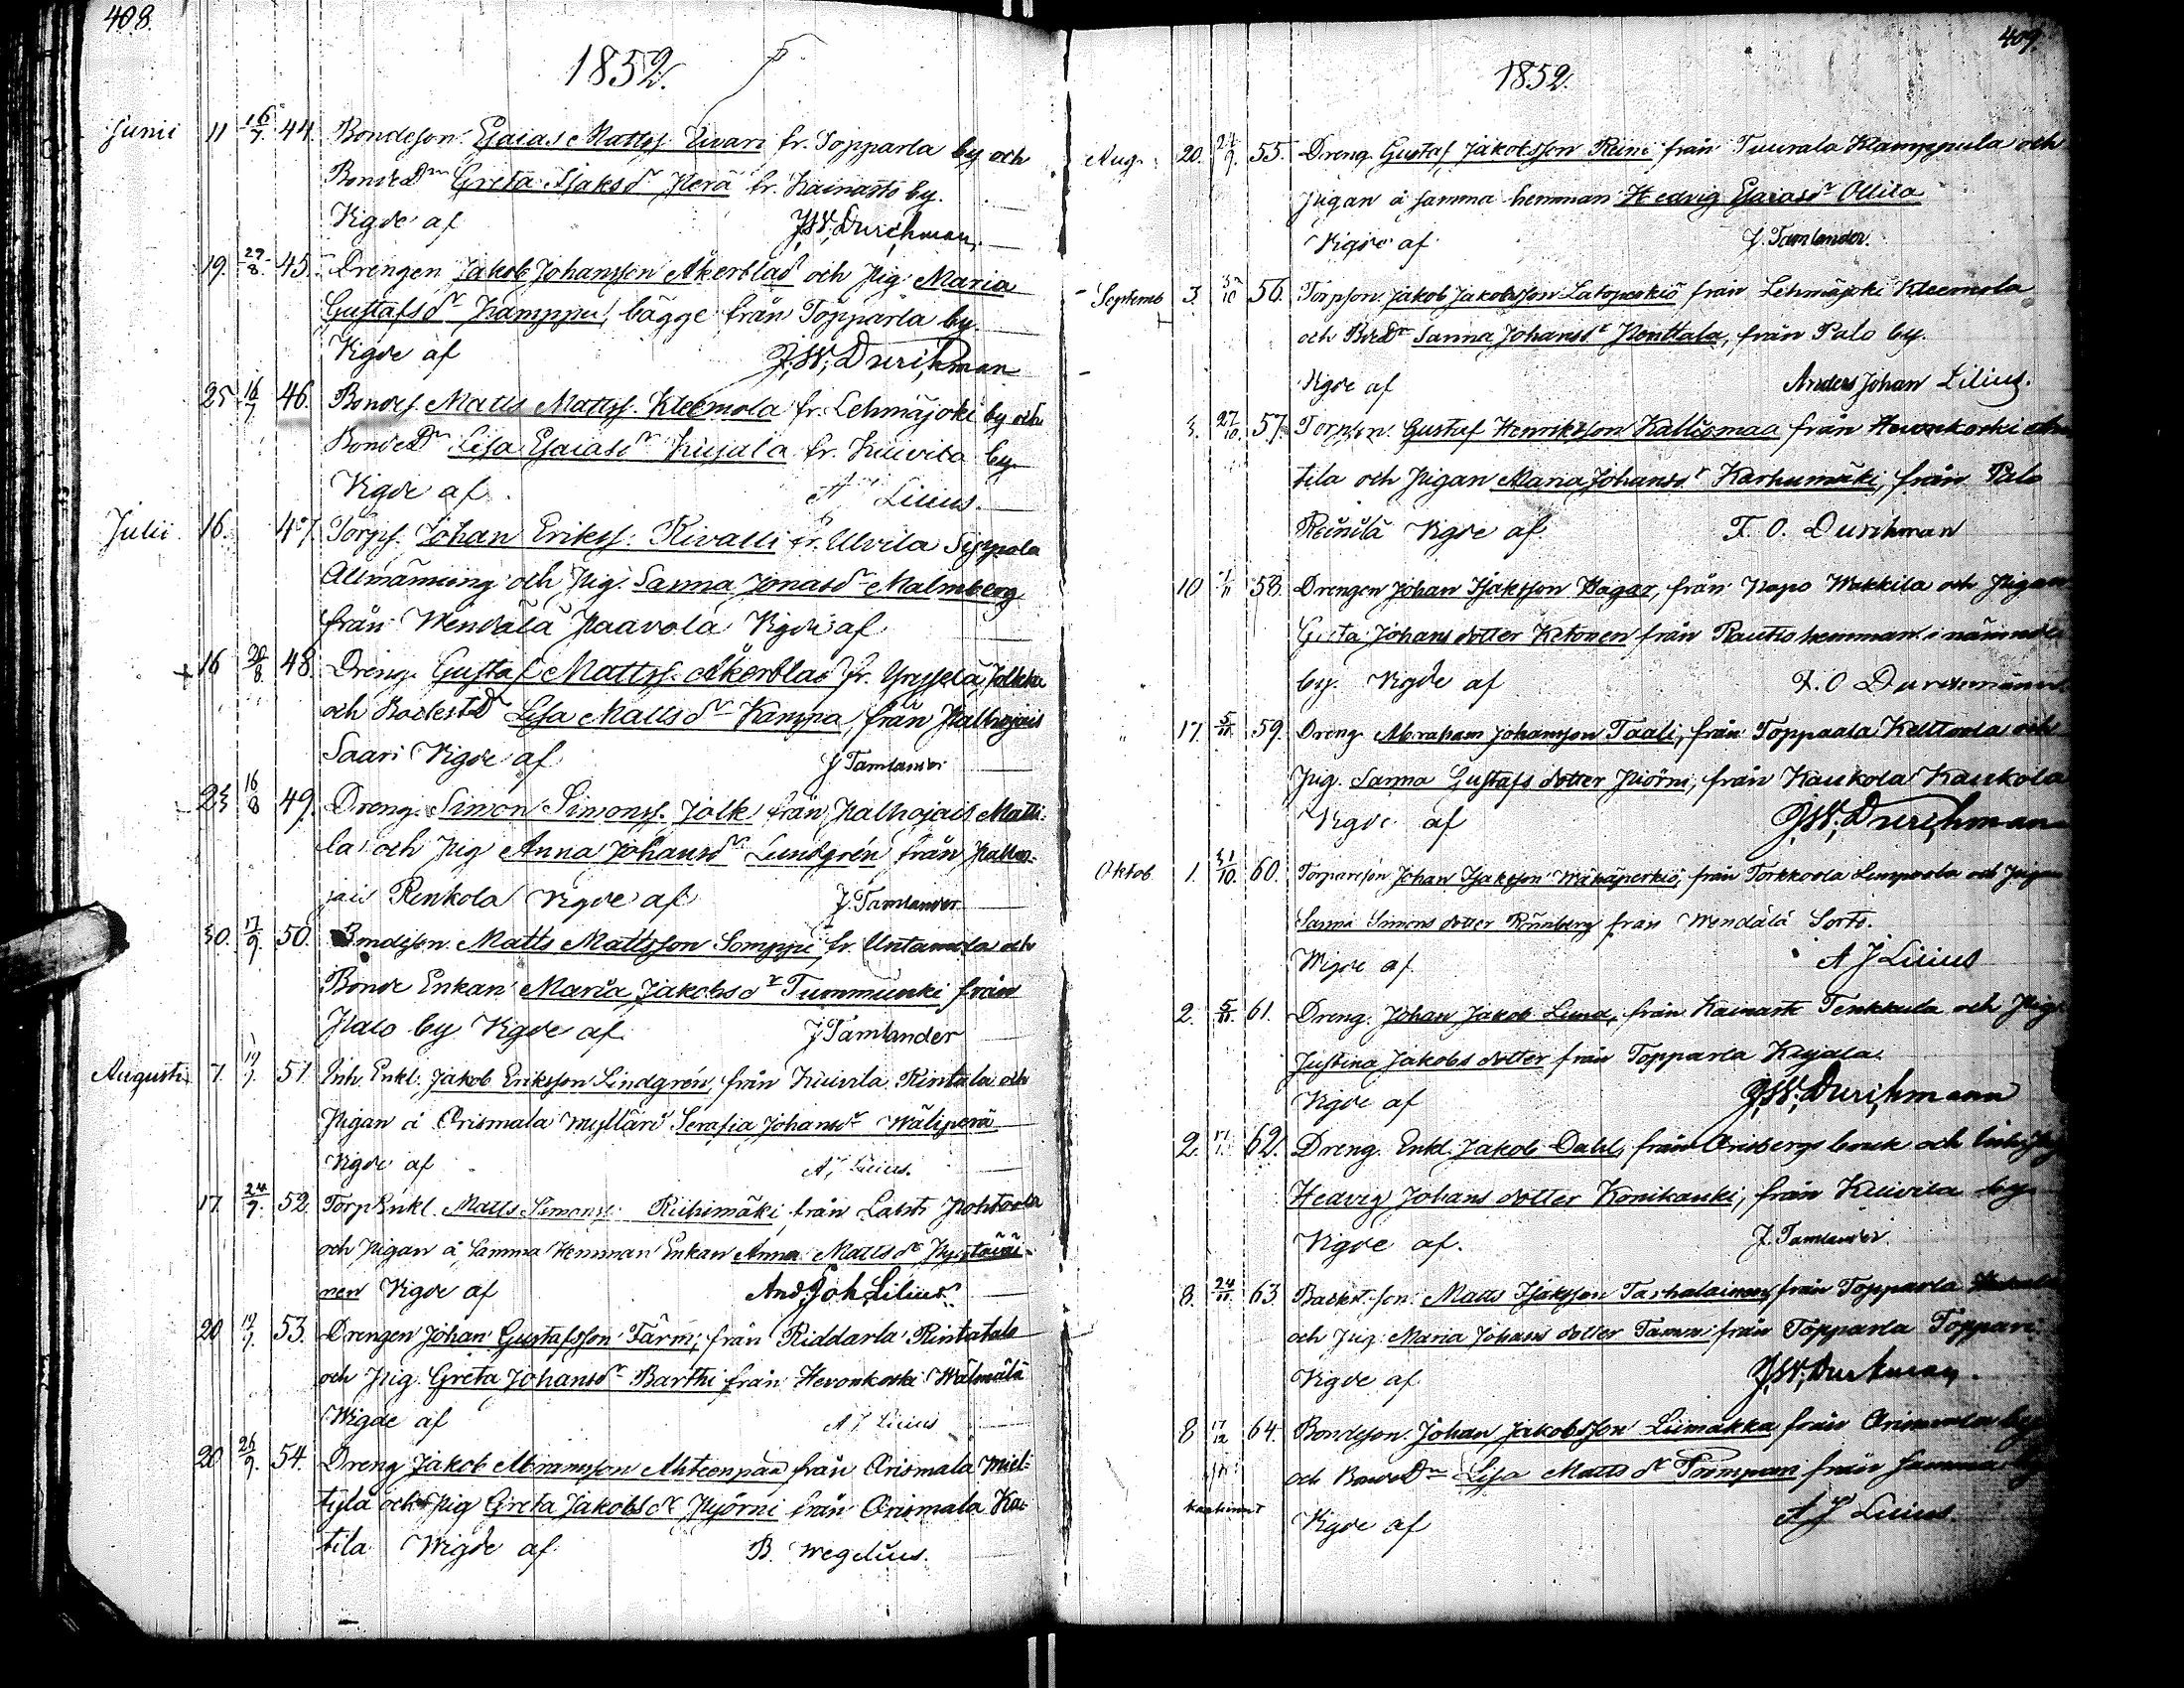 408.
1852.
Junii 11 16/7. 44. Bondeson. Esaias Mattss. Liuari fr. Topparla by och
Bonde Dr Greta Isaksdr Perä fr. Kainasto by.
Vigde af J.W. Durchman.
19. 29/8. 45. Drengen Jakob Johansson Åkerblad och Pig. Maria
Gustafsdr Kamppu, bägge från Topparla by
Vigde af J.W. Durchman
25 16/7 46. Bondes. Matts Mattss. Kleemola fr. Lehmäjoki by och
Bonde Dr Lisa Esaiasdr Kujala fr. Kuivila by.
Vigde af A Lilius.
Julii. 16. 47. Torps. Johan Erikss. Kivalli fr. Ulvila Seppola
Allmänning och Pig. Sanna Jonasdr Malmberg
från Wendälä Paavola Vigde af
16 20/8. 48. Dreng. Gustaf Mattss. Åkerblad fr. Yryselä Jokka
och Backst D Lisa Mattsdr Kamppa, från Kalhojais
Saari Vigde af J Tamlander
23 16/8 49. Dreng. Simon Simonss. Jolk från Kalhojais Matti-
la och Pig Anna Johansdr Lundgrén från Kalho-
jais Renkola Vigde af J. Tamlander
30. 17/9. 50. Bondeson. Matts Mattsson Somppi, fr. Untamala och
Bonde Enkan Maria Jakobsdr Tummunki från
Palo by Vigde af J Tamlander
Augusti 7. 19/9. 51. Inh. Enkl. Jakob Eriksson Lindgrén, från Kuivila Rintala och
Pigan å Orismala Myllärä Serafia Johansdr Wäliperä
Vigde af A, Lilius.
17. 24/9. 52. Torp Enkl. Matts Simonss. Riihimäki från Lahti Pohtola
och Pigan å samma Hemman Enkan Anna Mattsdr Pystäväi-
nen Vigde af And, Joh Lilius
20 19/9. 53. Drengen Johan Gustafsson Färm, från Riddarla Rintatalo
och Pig. Greta Johansdr Barthi från Hevonkoski Wälmälä
Wigde af A J Lilius
20 26/9. 54. Dreng Jakob Abramsson Ahteenpää från Orismala Miel-
tylä och Pig Greta Jakobsdr Pyörni från Orismala Ka-
tila Wigde af B. Wegelius.
409.
1852.
Aug. 20. 24/9. 55. Dreng. Gustaf Jakobsson Reini från Tuurala Kamppula och
Pigan å samma hemman Hedvig Esaiasdr Ollila
Vigde af J. Tamlander.
Septemb 3. 3/10 56. Torpson. Jakob Jakobsson Latoperkiö från Lehmäjoki Kleemola
och Bde Dr Sanna Johansdr Penttala, från Palo by.
Vigde af Anders Johan Lilius.
3. 27/10. 57. Torpson. Gustaf Henriksson Kaltiomaa från Hevonkoski
tila och Pigan Maria Johansdr Karhumäki, från Palo
Reinilä Vigde af F. O. Durchman
10 1/11 58. Drengen Johan Isaksson Hagar, från Napo Wakkila och Pigan
Greta Johans dotter Ketonen från Rautio hemman i nämnde
by. Vigde af F. O Durchman
17. 5/11. 59. Dreng. Abraham Johansson Taali, från Toppaala Kelttoola och
Pig. Sanna Gustafs dotter Piörni, från Kaukola Kaukola
Vigde af J.W. Durchman
Oktob. 1. 31/10. 60. Torpareson Johan Isaksson Wähäperkiö, från Torkkoola Lempoola och Pigan
Sanna Simons dotter Rönnberg från Wendälä Sorto.
Wigde af A J Lilius
2. 5/11 61. Dreng. Johan Jakob Lund, från Kainasto Tenkkula och Pig.
Justina Jakobs dotter från Topparla Kujala.
Vigde af J.W. Durchmann
2. 62. Dreng. Enkl. Jakob Dahl, från Orisbergs bruk och
Hedvig Johans dotter Konikanki, från Kuivila by
Vigde af. J. Tamlander.
8. 24/11 63. Backst. son. Matts Isaksson Tarhalainen, från Topparla
och Pig. Maria Johans dotter Tamm från Topparla Toppari.
Vigde af J.W. Durchman.
8 17/12 64. Bondeson. Johan Jakobsson Liimakka från Orismala by
och Bonde Dr Lisa Matts dr Poimpari från samma by
Vigde af A J Lilius